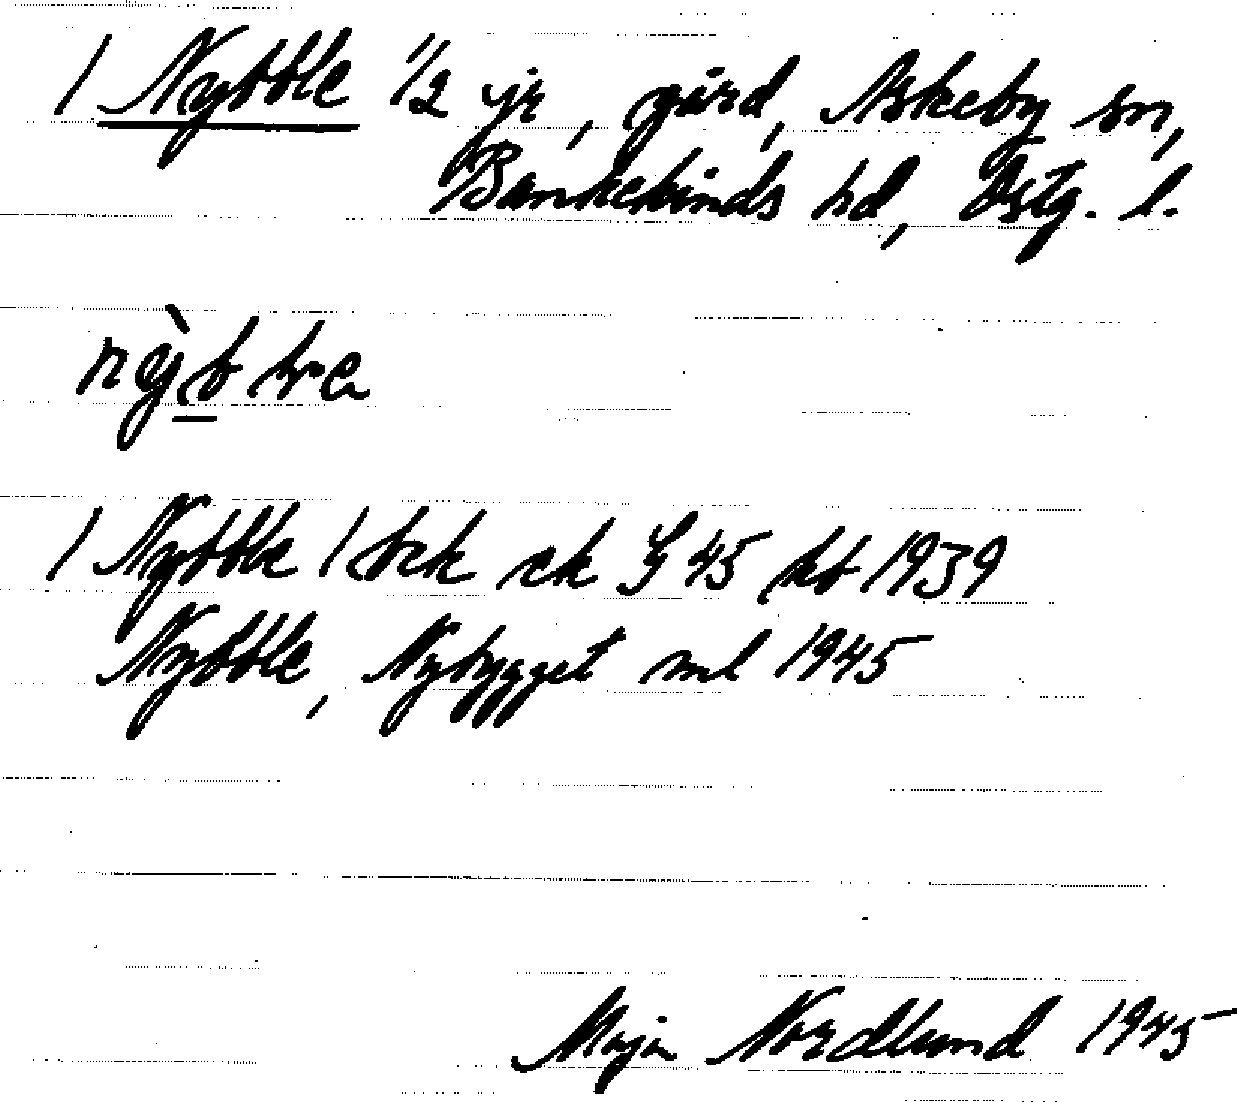 / Nybble 1/2 jr, gård, Askeby sn,
Bankekinds hd, Östg. l.
/ Nybble / bck ek S 45 kb 1939
Nybble, Nybygget ml 1945
Maja Nordlund 1945